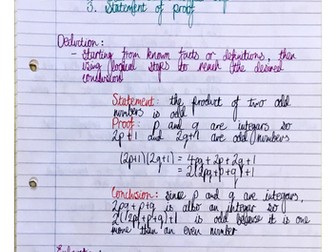 3. Statement of proof
Deduction:
- Starting from known facts or definitions, then
using logical steps to reach the desired
conclusion
Statement: the product of two odd
numbers is odd
Proof: p and q are integers so
2p+1 and 2q+1 are odd numbers
(2p+1)(2q+1) = 4pq + 2p + 2q + 1
= 2(2pq+p+q)+1
Conclusion: since p and q are integers,
2pq + p + q is also an integer so
2(2pq+p+q)+1 is odd because it is one
more than an even number